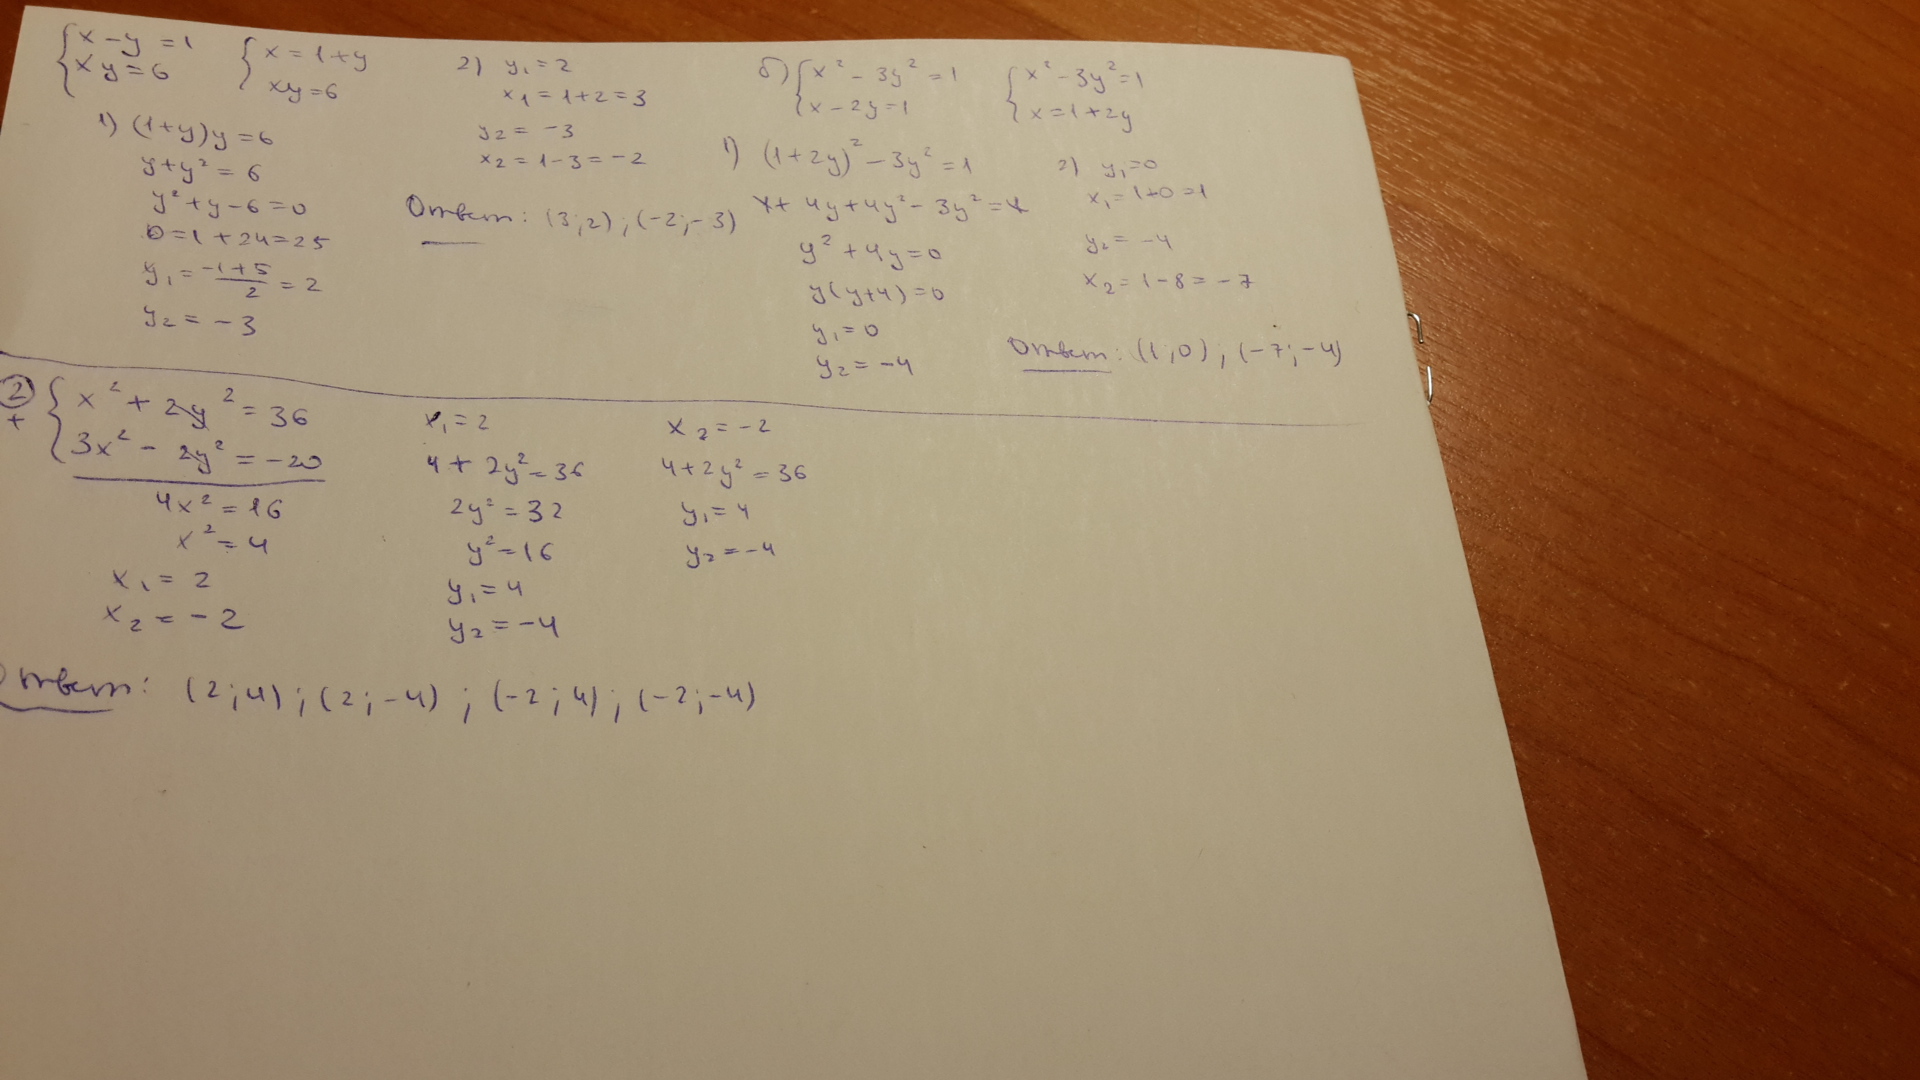 {x - y = 1
{xy = 6
{x = 1 + y
{xy = 6
1) (1+y)y = 6
y + y² = 6
y² + y - 6 = 0
D = 1 + 24 = 25
y₁ = (-1+5)/2 = 2
y₂ = -3
2) y₁ = 2
x₁ = 1 + 2 = 3
y₂ = -3
x₂ = 1 - 3 = -2
Ответ: (3; 2); (-2; -3)
б) {x² - 3y² = 1
{x - 2y = 1
{x² - 3y² = 1
{x = 1 + 2y
1) (1 + 2y)² - 3y² = 1
1 + 4y + 4y² - 3y² = 1
y² + 4y = 0
y(y+4) = 0
y₁ = 0
y₂ = -4
2) y₁ = 0
x₁ = 1 + 0 = 1
y₂ = -4
x₂ = 1 - 8 = -7
Ответ: (1; 0); (-7; -4)
2
+ {x² + 2y² = 36
{3x² - 2y² = -20
4x² = 16
x² = 4
x₁ = 2
x₂ = -2
x₁ = 2
4 + 2y² = 36
2y² = 32
y² = 16
y₁ = 4
y₂ = -4
x₂ = -2
4 + 2y² = 36
y₁ = 4
y₂ = -4
Ответ: (2; 4); (2; -4); (-2; 4); (-2; -4)